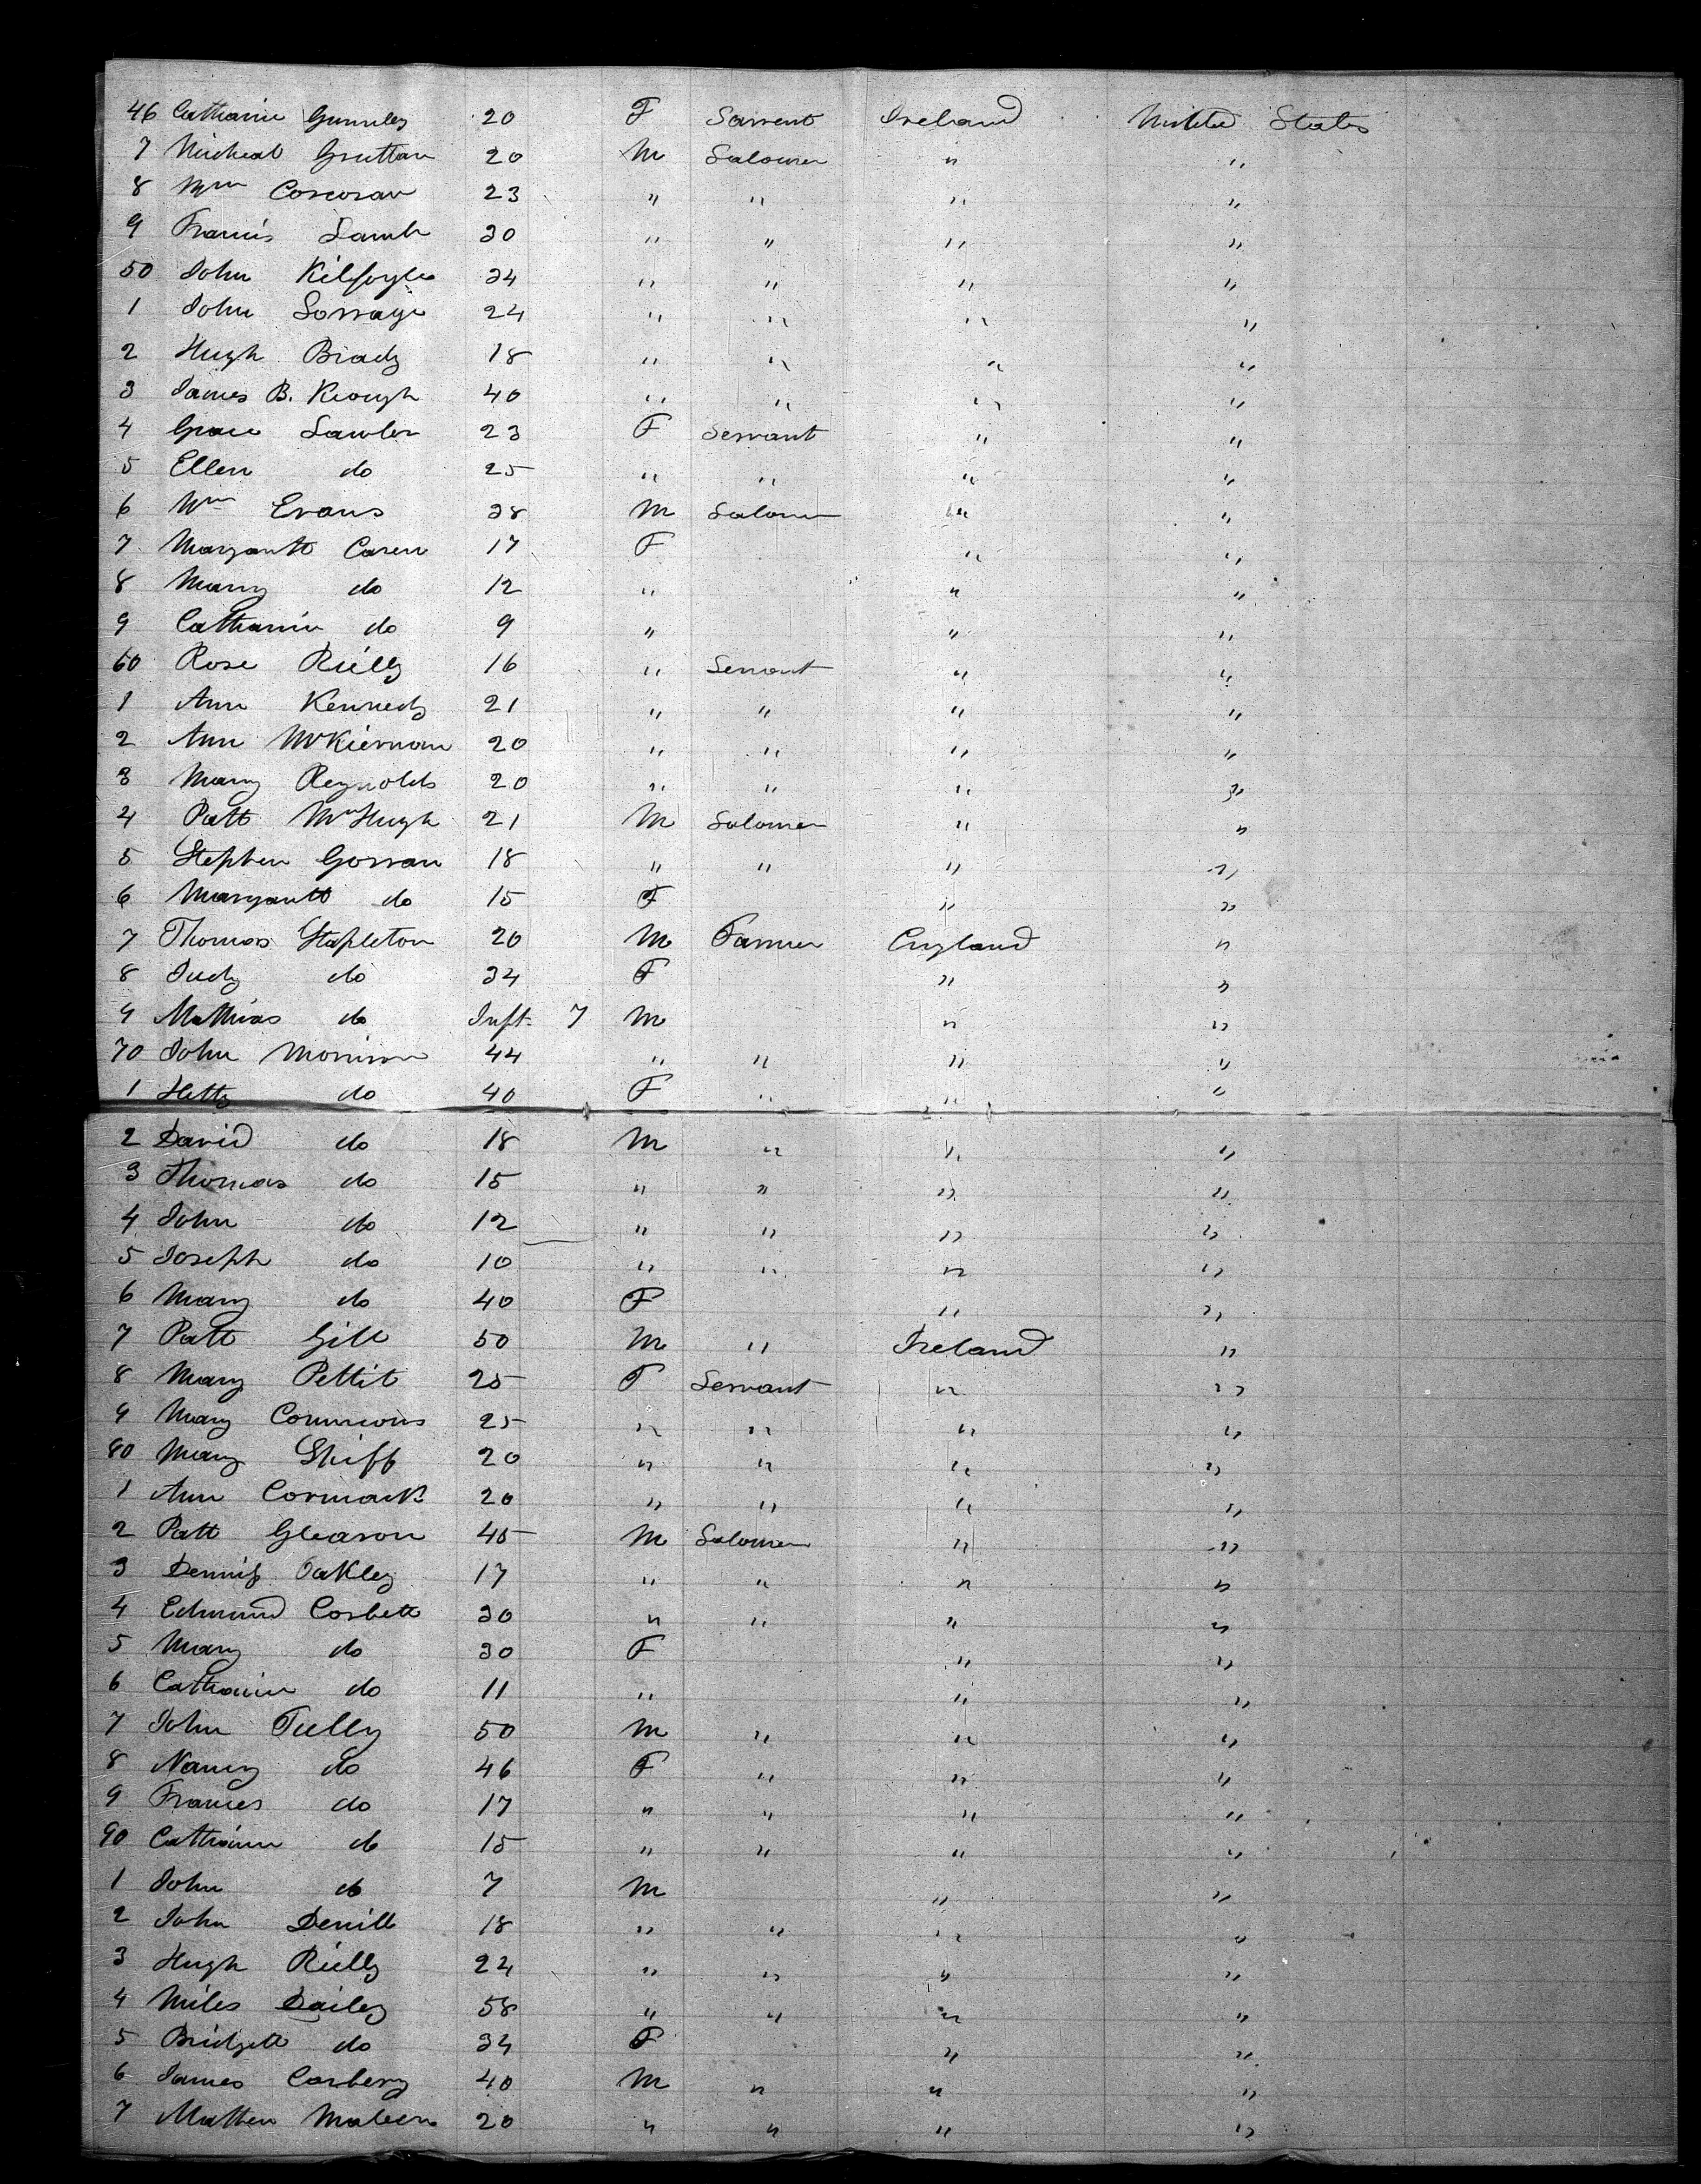 46 Catharine 20 F Servent Ireland United States
7 Micheal Gruttan 20 M Labourer " "
8 Wm Corcoran 23 " " " "
9 Francis Lamb 30 " " " "
50 John Kilfoyle 34 " " " "
1 John 24 " " " "
2 Hugh Brady 18 " " " "
3 James B. Keough 40 " " " "
4 Grace Lawler 23 F Servant " "
5 Ellen do 25 " " " "
6 Wm Evans 38 M Labourer " "
7 Margarett Caren 17 F " "
8 Mary do 12 " " "
9 Catharine do 9 " " "
60 Rose Rielly 16 " Servant " "
1 Ann Kennedy 21 " " " "
2 Ann McKiernan 20 " " " "
3 Mary Reynolds 20 " " " "
4 Patt McHugh 21 M Labourer " "
5 Stephen Gorran 18 " " " "
6 Margarett do 15 F " "
7 Thomas Stapleton 20 M Farmer England "
8 Judy do 34 F " "
9 Mathias do Inft 7 M " "
70 John Morrison 44 " " " "
1 Hetty do 40 F " " "
2 David do 18 M " " "
3 Thomas do 15 " " " "
4 John do 12 " " " "
5 Joseph do 10 " " " "
6 Mary do 40 F " "
7 Patt Gill 50 M " Ireland "
8 Mary Pettit 25 F Servant " "
9 Mary Commons 25 " " " "
80 Mary Shiff 20 " " " "
1 Ann Cormack 20 " " " "
2 Patt Gleason 45 M Labourer " "
3 Dennis Oakley 17 " " " "
4 Edmund Corbett 30 " " " "
5 Mary do 30 F " "
6 Catharine do 11 " " "
7 John Tully 50 M " " "
8 Nancy do 46 F " " "
9 Frances do 17 " " " "
90 Catharine do 15 " " " "
1 John do 7 M " "
2 John Devill 18 " " " "
3 Hugh Rielly 24 " " " "
4 Miles Dailey 58 " " " "
5 Bridgett do 34 F " "
6 James Corbery 40 M " " "
7 Matthew 20 " " " "